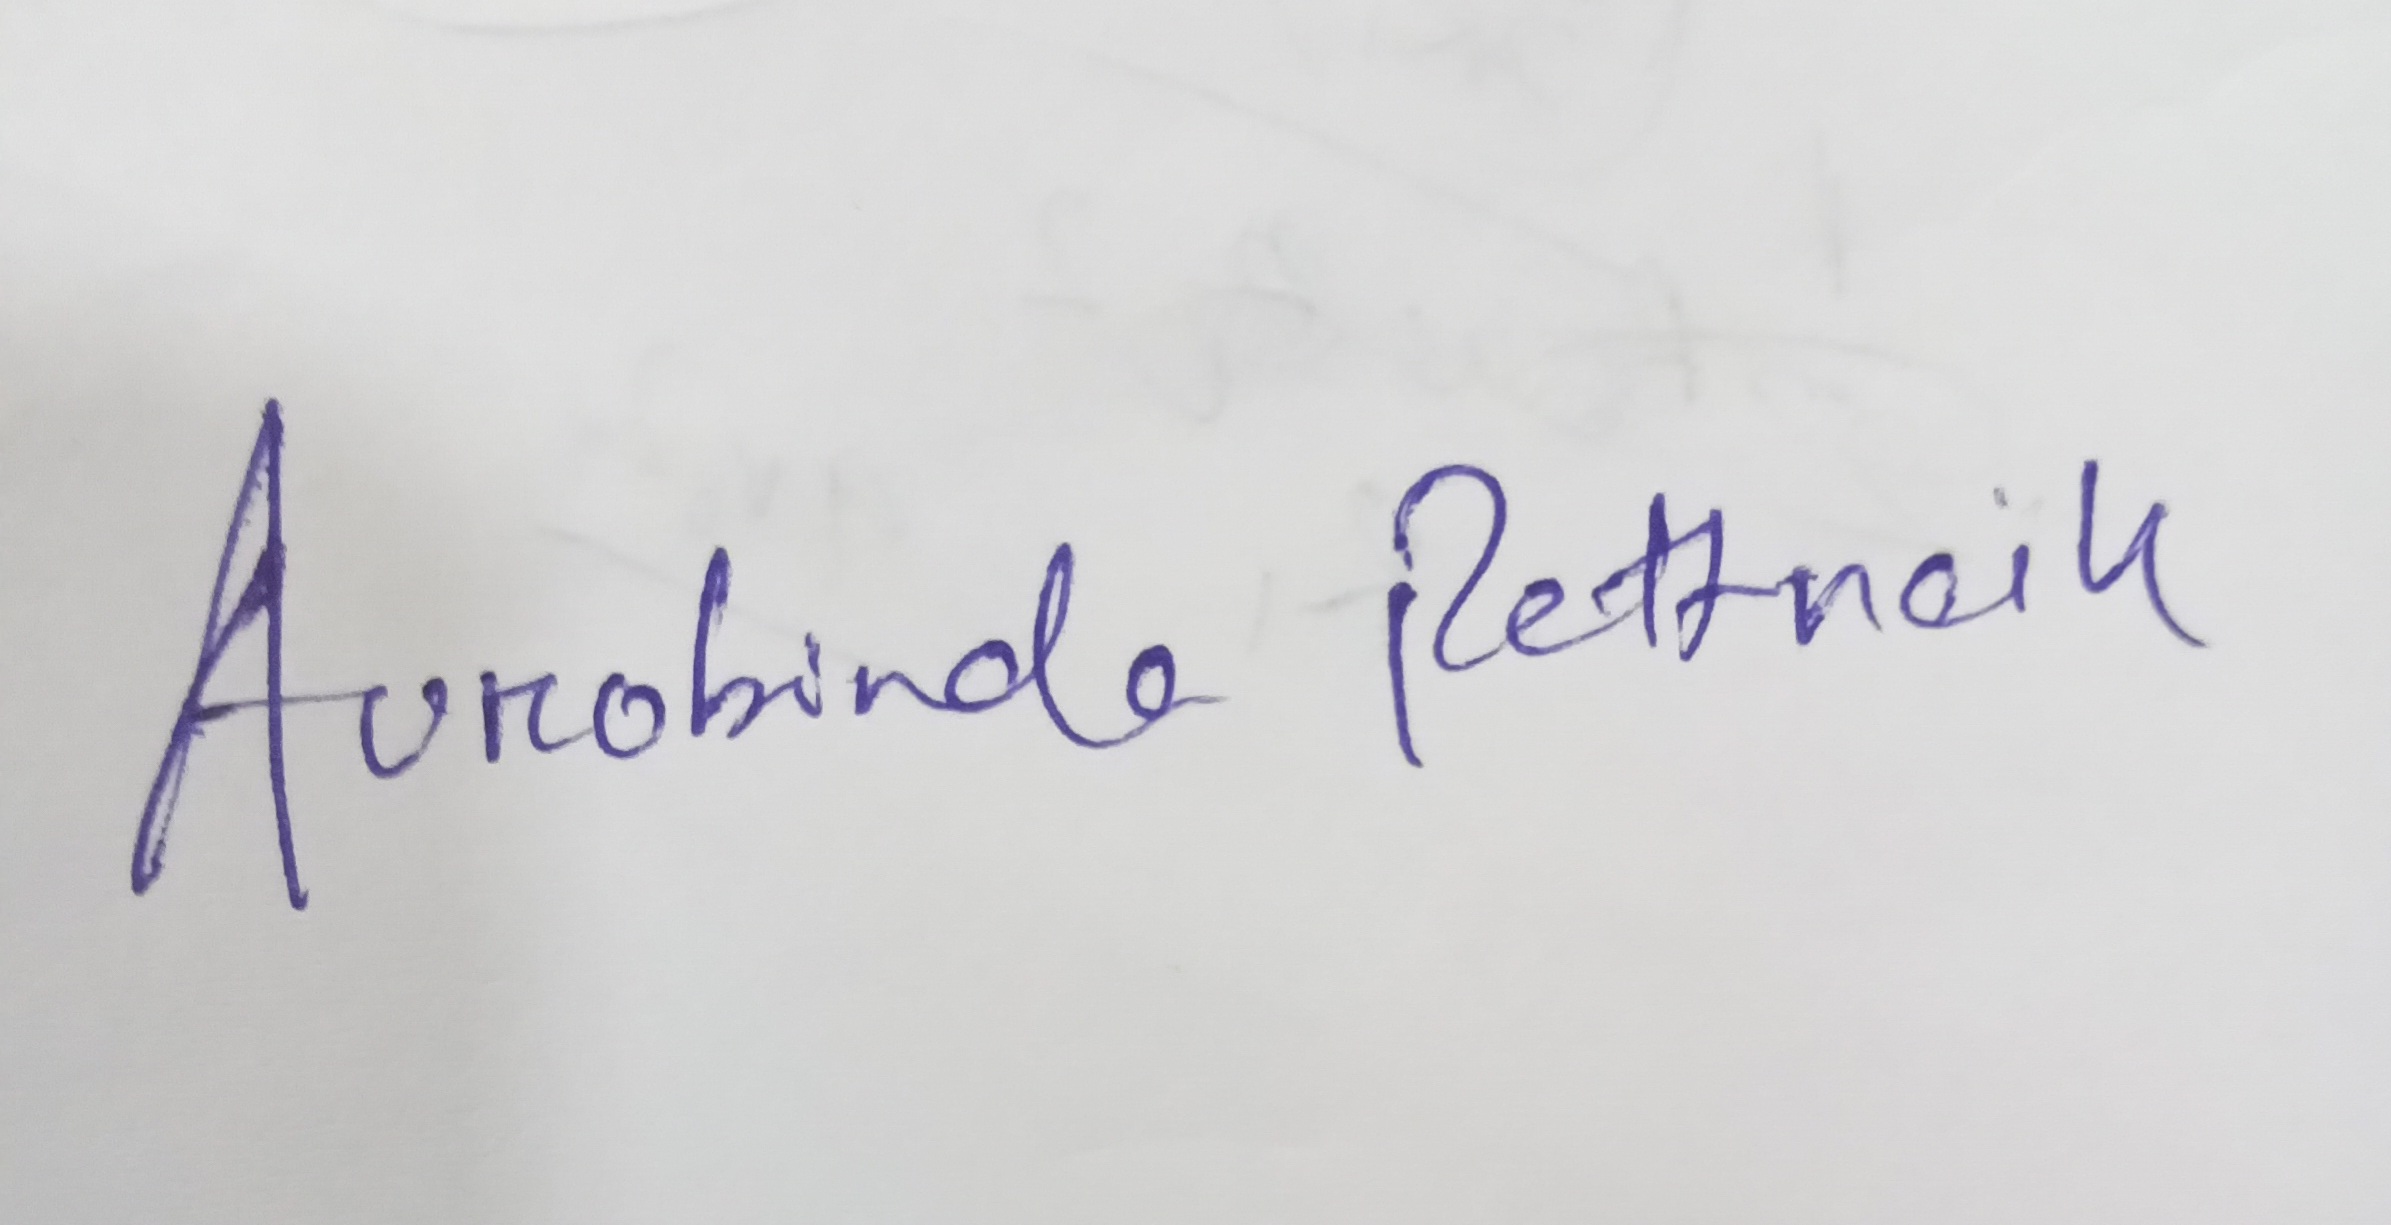 Aurobinda Pattnaik